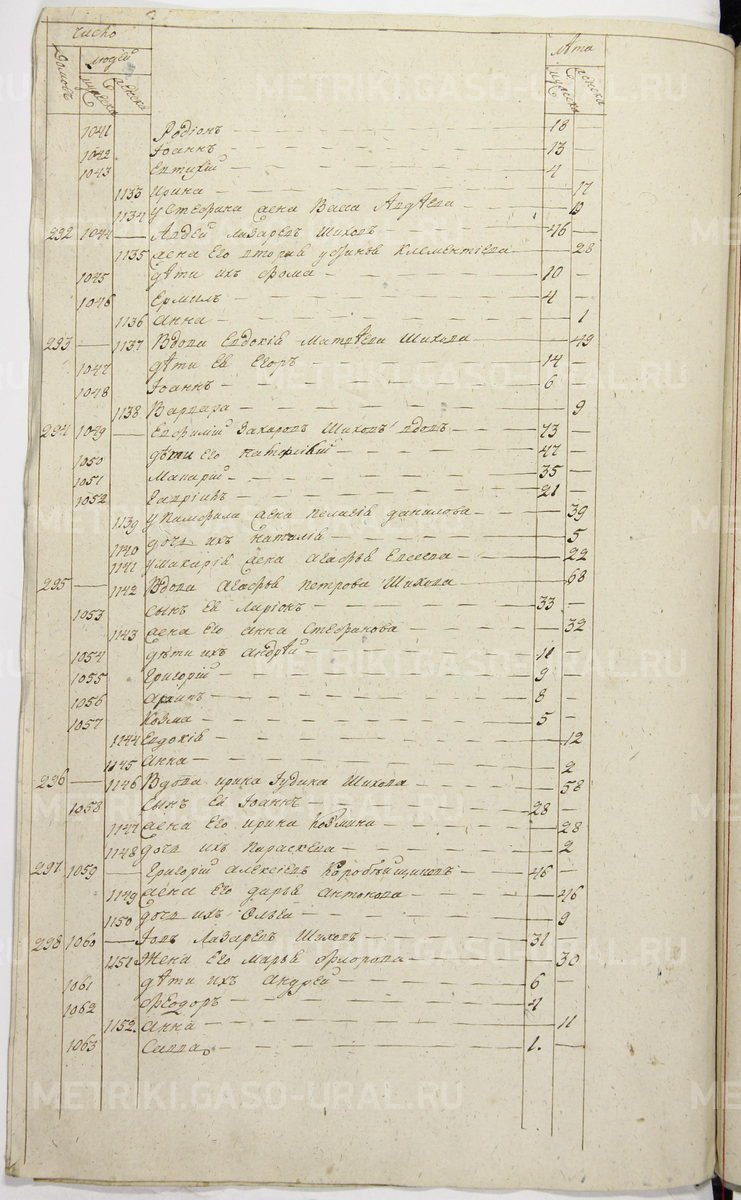 число лѣта
Домовъ людей
мужска женска мужска женска
1041 Родіонъ 18
1042 Іоаннъ 13
1043 Евтихій 4
1133 Ирина 17
1134 у Стефана жена Васса Авдѣева
292 1044 Авдей Лазаревъ Шиховъ 46
1135 жена Его вторая устинья Клементіева 28
1045 дѣти ихъ Фома 10
1046 Ермилъ 4
1136 Анна 1
293 1137 Вдова Евдокія Матвѣева Шихова 49
1047 дѣти Ея Егоръ 14
1048 Іоаннъ 6
1138 Варвара 9
294 1049 Евфимій Захаровъ Шиховъ вдовъ 73
1050 дѣти его Памфилій 47
1051 Макарій 35
1052 Гавріилъ 21
1139 у Памфила жена Пелагія данилова 39
1140 дочь ихъ Наталія 5
1141 у Макарія жена Агафья Евсеева 22
295 1142 Вдова Агафья петрова Шихова 68
1053 сынъ Ея Ларіонъ 33
1143 жена Его Анна Стефанова 32
1054 дѣти ихъ Андрѣй 11
1055 Григорій 9
1056 архипъ 8
1057 Козма 5
1144 Евдокія 12
1145 Анна 2
296 1146 Вдова ирина Іудина Шихова 58
1058 Сынъ Ея Іоаннъ 28
1147 жена Его ирина Козмина 28
1148 дочь ихъ Параскева 2
297 1059 Григорій алексіевъ Коробейщиковъ 46
1149 жена Его дарья антонова 46
1150 дочь ихъ Ольга 9
298 1060 Іовъ Лазаревъ Шиховъ 31
1151 Жена Его Марья Фиорова 30
1061 дѣти ихъ андрей 6
1062 Феодоръ 4
1152 анна 11
1063 Савва 1
METRIKI.GASO-URAL.RU